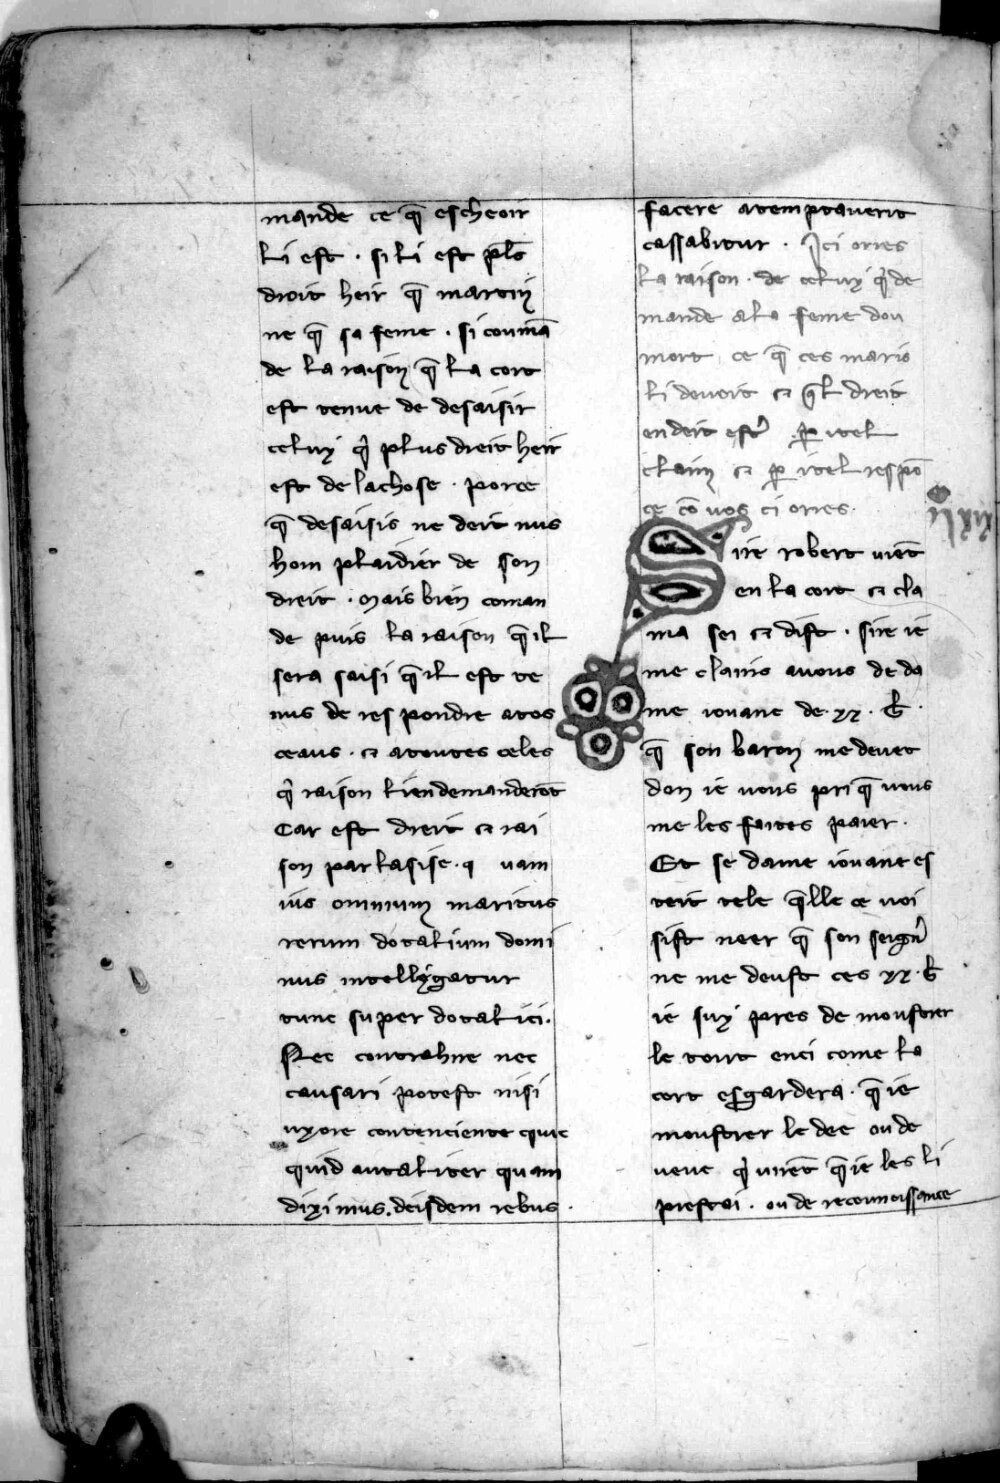 mande ce q̄ escheoir
li est · si li est pl̄s
droit heir q̄ martin
ne q̄ sa feme · si coumā
de la raison q̄ la cort
est tenue de desaisir
celuy q̇ plus dreit heir
est de lachose · porce
q̄ desaisis ne deit nus
hom plaidier de son
dreit · Mais bien coman
de puis la raison q̄ il
sera saisi q̄ il est te
nus de respondre atos
ceaus · ⁊ atoutes celes
q̇ raison liendemanderōt
Car est dreit ⁊ rai
son par lasise · q uam
uis omnium maritus
rerum dotalium domi
nus intelligatur
tunc super dotalici·
Nec contrahere nec
causari potest nisi
uxore contenciente quic
quid autaliter quam
diximus · deisdem rebus ·
facere atemptauerit
cassabitur · Ici orres
la raison · de celuy q̇ de
mande ala feme dou
mort ce q̄ ces maris
li deueit ⁊ q̄l dreit
endeit estr̉ · ꝑ itel
claim ⁊ ꝑ itel respō
ce cō uos ci orres ·
Sire robert uiēt
en la cort ⁊ cla
ma sei ⁊ dist · sire ie
me clains auous de da
me iouane de · xx · b̄ ·
q̄ son baron me deuet
don ie uous pri q̄ uous
me les faites paier ·
Et se dame iouane es
teit tele q̄lle ce uoi
sist neer q̄ son seign̉
ne me deust ces xx · b̄
ie suy pres de moustrer
le tout enci come la
cort esgardera · q̄ ie
moustrer le dee ou de
ueue q̇ uirēt q̄ ie les li
prestai · ou de reconnoissance